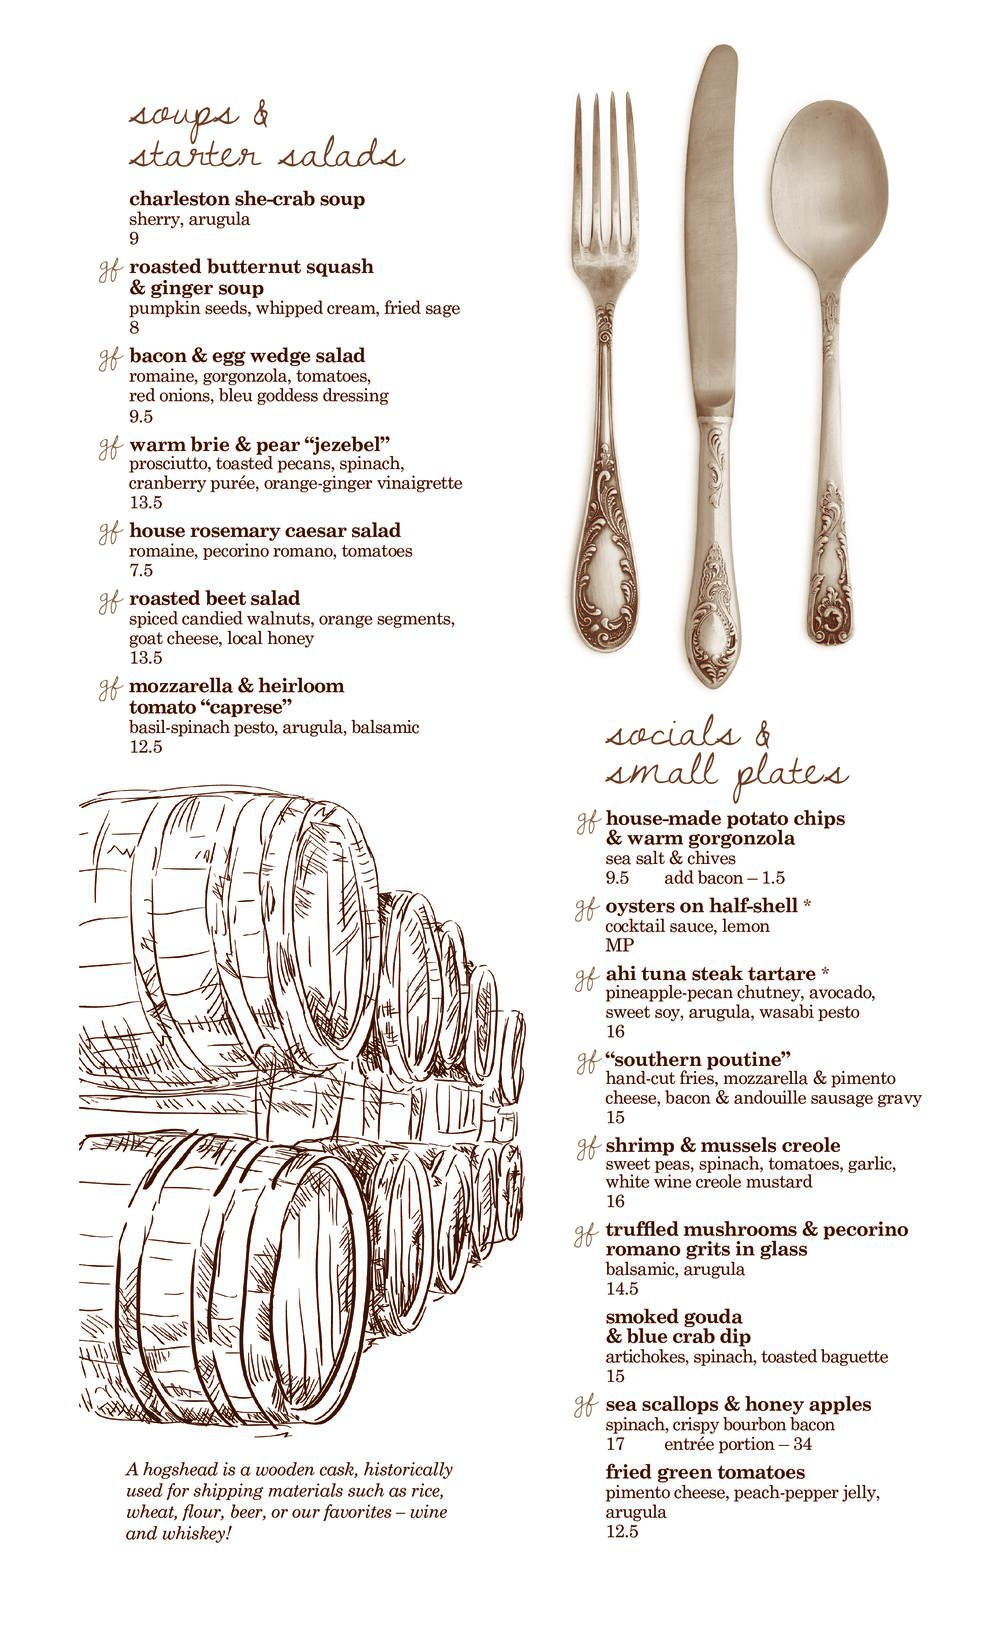 soups &
starter salads
charleston she-crab soup
sherry, arugula
9
gf roasted butternut squash
& ginger soup
pumpkin seeds, whipped cream, fried sage
8
gf bacon & egg wedge salad
romaine, gorgonzola, tomatoes,
red onions, bleu goddess dressing
9.5
gf warm brie & pear “jezebel”
prosciutto, toasted pecans, spinach,
cranberry purée, orange-ginger vinaigrette
13.5
gf house rosemary caesar salad
romaine, pecorino romano, tomatoes
7.5
gf roasted beet salad
spiced candied walnuts, orange segments,
goat cheese, local honey
13.5
gf mozzarella & heirloom
tomato “caprese”
basil-spinach pesto, arugula, balsamic
12.5
A hogshead is a wooden cask, historically
used for shipping materials such as rice,
wheat, flour, beer, or our favorites – wine
and whiskey!
socials &
small plates
gf house-made potato chips
& warm gorgonzola
sea salt & chives
9.5 add bacon – 1.5
gf oysters on half-shell *
cocktail sauce, lemon
MP
gf ahi tuna steak tartare *
pineapple-pecan chutney, avocado,
sweet soy, arugula, wasabi pesto
16
gf “southern poutine”
hand-cut fries, mozzarella & pimento
cheese, bacon & andouille sausage gravy
15
gf shrimp & mussels creole
sweet peas, spinach, tomatoes, garlic,
white wine creole mustard
16
gf truffled mushrooms & pecorino
romano grits in glass
balsamic, arugula
14.5
smoked gouda
& blue crab dip
artichokes, spinach, toasted baguette
15
gf sea scallops & honey apples
spinach, crispy bourbon bacon
17 entrée portion – 34
fried green tomatoes
pimento cheese, peach-pepper jelly,
arugula
12.5